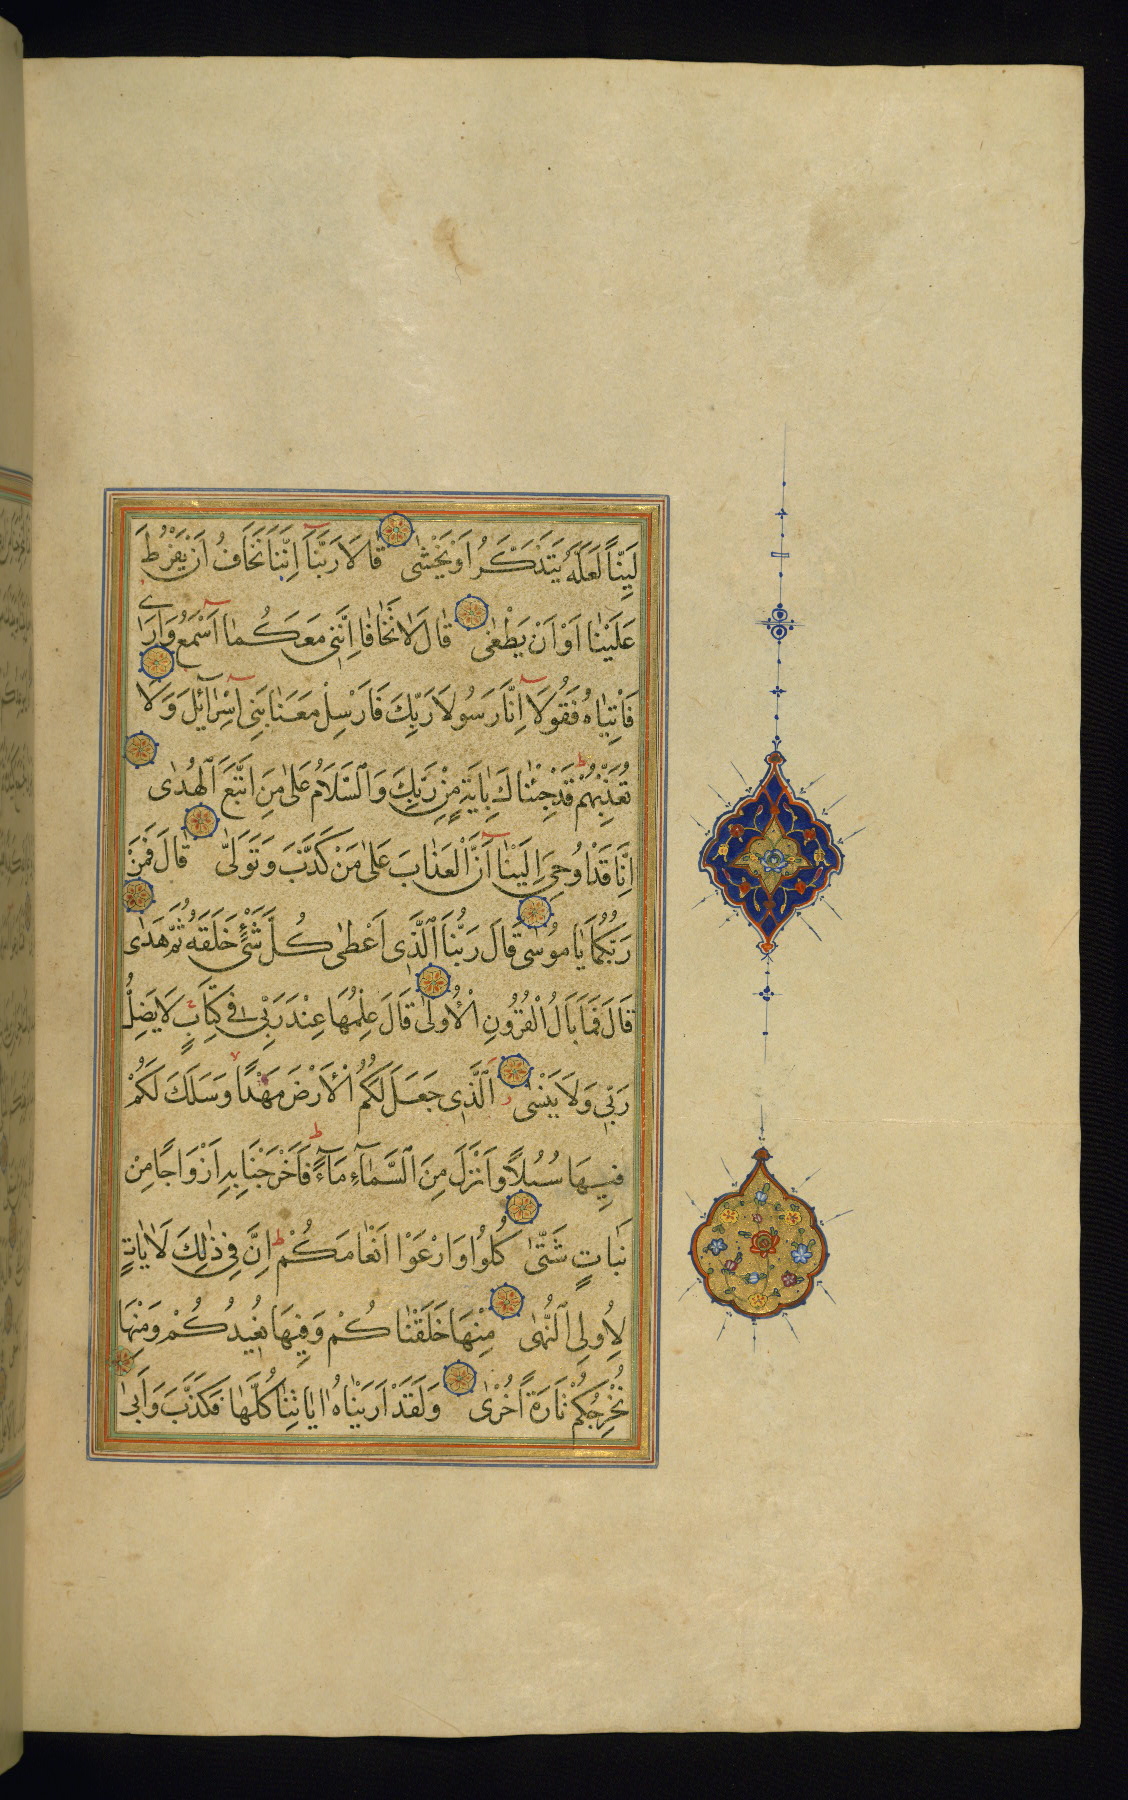 لَيِّنًا لَعَلَّهُ يَتَذَكَّرُ اَوْ يَخْشٰى قَالَا رَبَّنَا اِنَّنَا نَخَافُ اَنْ يَفْرُطَ
عَلَيْنَا اَوْ اَنْ يَطْغٰى قَالَ لَا تَخَافَا اِنَّنِى مَعَكُمَا اَسْمَعُ وَاَرٰى
فَاْتِيَاهُ فَقُولَا اِنَّا رَسُولَا رَبِّكَ فَاَرْسِلْ مَعَنَا بَنِى اِسْرَآئِلَ وَلَا
تُعَذِّبْهُمْ قَدْ جِئْنَاكَ بِاٰيَةٍ مِنْ رَبِّكَ وَالسَّلَامُ عَلٰى مَنِ اتَّبَعَ الْهُدٰى
اِنَّا قَدْ اُوحِىَ اِلَيْنَا اَنَّ الْعَذَابَ عَلٰى مَنْ كَذَّبَ وَتَوَلّٰى قَالَ فَمَنْ
رَبُّكُمَا يَا مُوسٰى قَالَ رَبُّنَا الَّذِى اَعْطٰى كُلَّ شَىْءٍ خَلَقَهُ ثُمَّ هَدٰى
قَالَ فَمَا بَالُ الْقُرُونِ الْاُولٰى قَالَ عِلْمُهَا عِنْدَ رَبِّى فِى كِتَابٍ لَا يَضِلُّ
رَبِّى وَلَا يَنْسٰى اَلَّذِى جَعَلَ لَكُمُ الْاَرْضَ مَهْدًا وَسَلَكَ لَكُمْ
فِيهَا سُبُلًا وَاَنْزَلَ مِنَ السَّمَآءِ مَآءً فَاَخْرَجْنَا بِهِ اَزْوَاجًا مِنْ
نَبَاتٍ شَتّٰى كُلُوا وَارْعَوْا اَنْعَامَكُمْ اِنَّ فِى ذٰلِكَ لَاٰيَاتٍ
لِاُولِى النُّهٰى مِنْهَا خَلَقْنَاكُمْ وَفِيهَا نُعِيدُكُمْ وَمِنْهَا
نُخْرِجُكُمْ تَارَةً اُخْرٰى وَلَقَدْ اَرَيْنَاهُ اٰيَاتِنَا كُلَّهَا فَكَذَّبَ وَاَبٰى